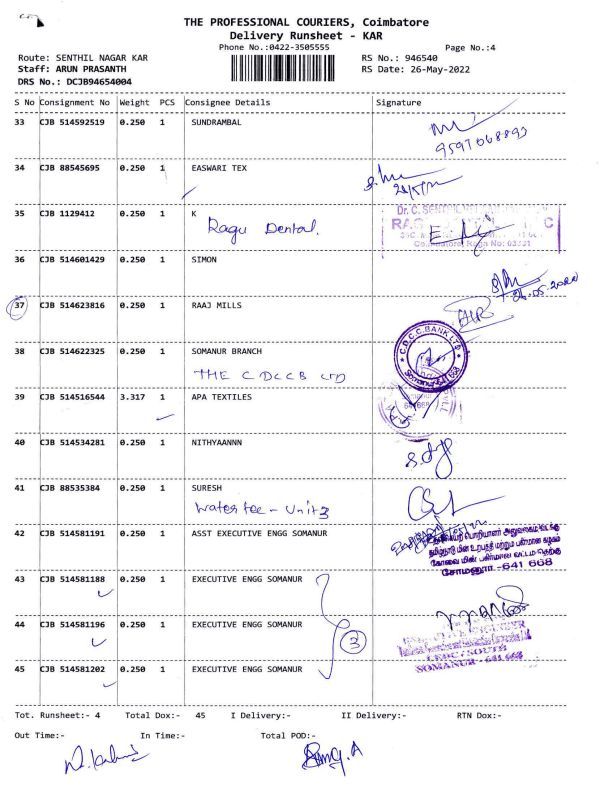 THE PROFESSIONAL COURIERS, Coimbatore
Delivery Runsheet - KAR
Phone No.:0422-3505555
Page No.:4
Route: SENTHIL NAGAR KAR
RS No.: 946540
Staff: ARUN PRASANTH
RS Date: 26-May-2022
DRS No.: DCJB94654004
S No Consignment No Weight PCS Consignee Details Signature
33 CJB 514592519 0.250 1 SUNDRAMBAL
9597068893
34 CJB 88545695 0.250 1 EASWARI TEX
35 CJB 1129412 0.250 1 K
Ragu Dental.
36 CJB 514601429 0.250 1 SIMON
37 CJB 514623816 0.250 1 RAAJ MILLS
38 CJB 514622325 0.250 1 SOMANUR BRANCH
THE C DCCB LTD
C.D.C.C.BANK LTD
Somanur
39 CJB 514516544 3.317 1 APA TEXTILES
40 CJB 514534281 0.250 1 NITHYAANNN
41 CJB 88535384 0.250 1 SURESH
Water tee - Unit 3
42 CJB 514581191 0.250 1 ASST EXECUTIVE ENGG SOMANUR
சோமனூர் -641 668
43 CJB 514581188 0.250 1 EXECUTIVE ENGG SOMANUR
44 CJB 514581196 0.250 1 EXECUTIVE ENGG SOMANUR
3
SOMANUR - 641 668
45 CJB 514581202 0.250 1 EXECUTIVE ENGG SOMANUR
Tot. Runsheet:- 4 Total Dox:- 45 I Delivery:- II Delivery:- RTN Dox:-
Out Time:- In Time:- Total POD:-